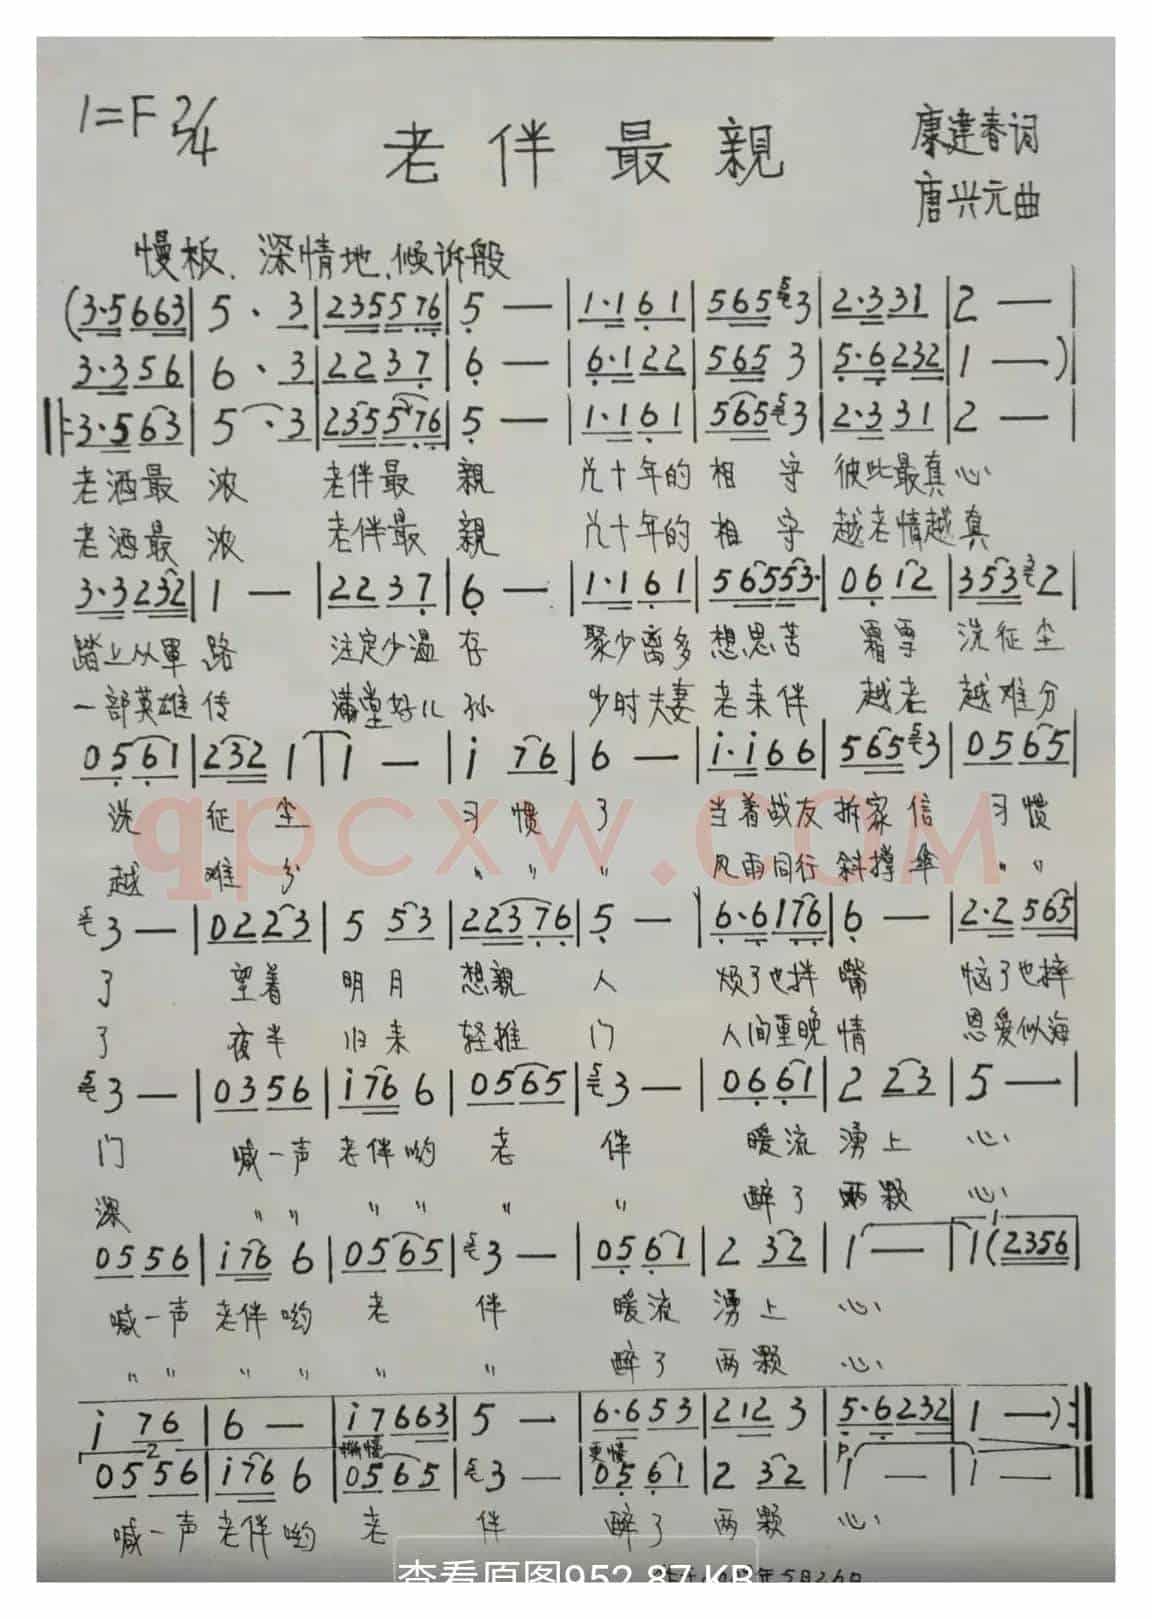 1=F 2/4
老伴最親
康建春词
唐兴元曲
慢板、深情地、倾诉般
(3·5 663 | 5 · 3 | 235576 | 5 — | 1·1 61 | 565 3 | 2·3 31 | 2 — |
3·3 56 | 6 · 3 | 22 37 | 6 — | 6·1 22 | 565 3 | 5·6 232 | 1 — ) |
‖: 3·5 63 | 5 · 3 | 235576 | 5 — | 1·1 61 | 565 3 | 2·3 31 | 2 — |
老酒最浓 老伴最親 几十年的相守 彼此最真心
老酒最浓 老伴最親 几十年的相守 越老情越真
3·3 232 | 1 — | 22 37 | 6 — | 1·1 61 | 565 53· | 06 12 | 353 2 |
踏上从軍路 注定少温存 聚少离多想思苦 霜雪 洗征尘
一部英雄传 满堂好儿孙 少时夫妻老来伴 越老 越难分
05 61 | 232 1 | 1 — | i 76 | 6 — | i·i 66 | 565 3 | 05 65 |
洗征尘 习惯了 当着战友拆家信 习惯
越难分 " " " 风雨同行斜撑伞 " "
3 — | 02 23 | 5 53 | 223 76 | 5 — | 6·6 176 | 6 — | 2·2 565 |
了 望着明月想親人 烦了也拌嘴 恼了也摔
了 夜半归来轻推门 人间重晚情 恩爱似海
3 — | 03 56 | i76 6 | 05 65 | 3 — | 06 61 | 2 23 | 5 — |
门 喊一声老伴哟 老伴 暖流湧上心
深 " " " " " " 醉了两颗心
05 56 | i76 6 | 05 65 | 3 — | 05 61 | 2 32 | 1 — | 1 (2356 |
喊一声老伴哟 老伴 暖流湧上心
" " " " " " 醉了两颗心
i 76 | 6 — | i7 663 | 5 — | 6·6 53 | 212 3 | 5·6 232 | 1 — ) :‖
05 56 | i76 6 | 05 65 | 3 — | 05 61 | 2 32 | 1 — | 1 — ‖
更慢
喊一声老伴哟 老伴 醉了两颗心
qpcxw.com
查看原图952.87 KB
年5月26日